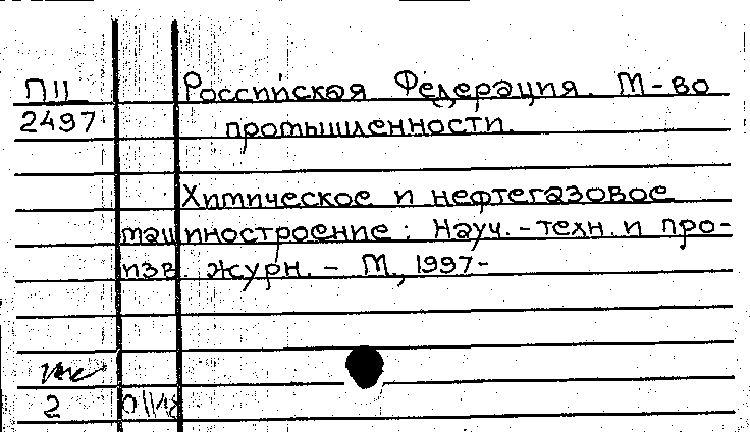 П11 Российская Федерация. М-во
2497 промышленности.
Химическое и нефтегазовое
машиностроение : Науч.-техн. и про-
изв. журн. - М., 1997-
2